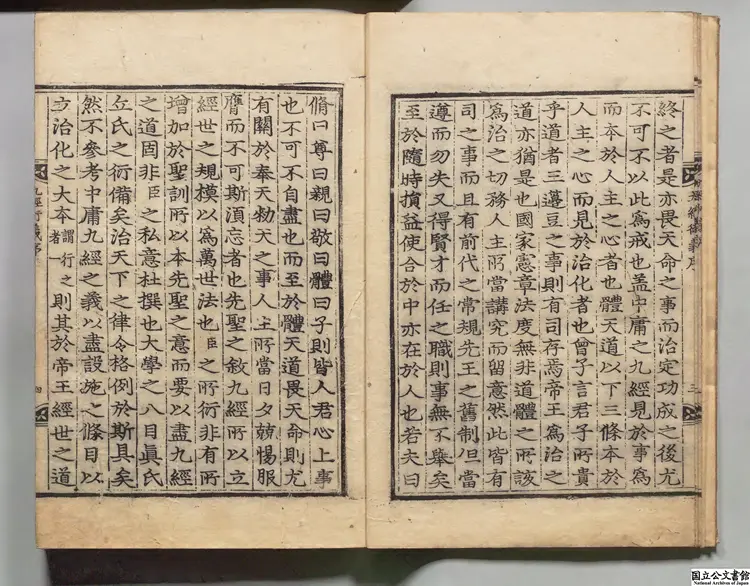 九經衍義序
三
終之者是亦畏天命之事而治定功成之後尤
不可不以此爲戒也盖中庸之九經見於事爲
而本於人主之心者也體天道以下三條本於
人主之心而見於治化者也曾子言君子所貴
乎道者三籩豆之事則有司存焉帝王爲治之
道亦猶是也國家憲章法度無非道體之所該
爲治之切務人主所當講究而留意然此皆有
司之事而且有前代之常規先王之舊制但當
遵而勿失又得賢才而任之職則事無不舉矣
至於隨時損益使合於中亦在於人也若夫曰
脩曰尊曰親曰敬曰體曰子則皆人君心上事
也不可不自盡也而至於體天道畏天命則尤
有關於奉天勑天之事人主所當日夕兢惕服
膺而不可斯湏忘者也先聖之敘九經所以立
經世之規模以爲萬世法也臣之所衍非有所
增加於聖訓所以本先聖之意而要以盡九經
之道固非臣之私意杜撰也大學之八目眞氏
丘氏之衍備矣治天下之律令格例於斯具矣
然不參考中庸九經之義以盡設施之條目以
立治化之大本謂行之者一則其於帝王經世之道
九經衍義序
四
国立公文書館
National Archives of Japan